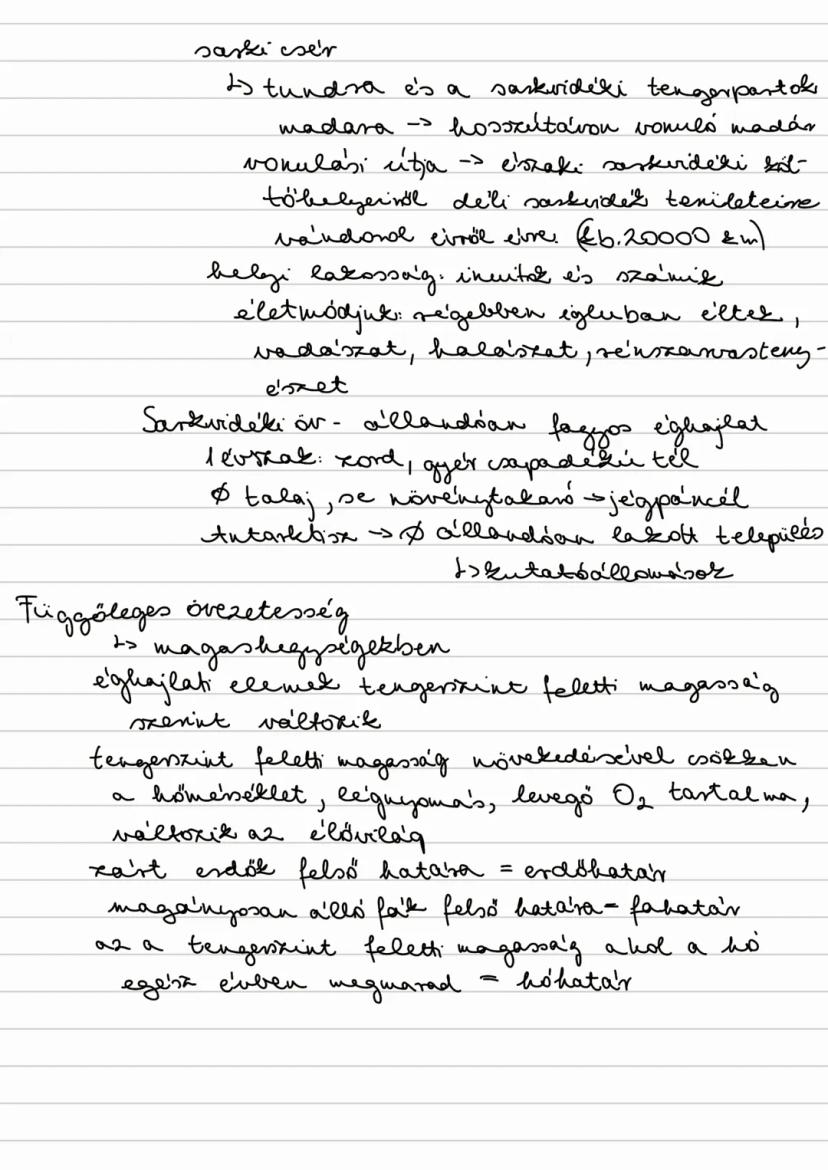 sarki csér
↳ tundra és a sarkvidéki tengerpartok
madara → hosszútávon vonuló madár
vonulási útja → északi sarkvidéki köl-
tőhelyeiről déli sarkvidék területeire
vándorol évről évre (kb. 20000 km)
helyi lakosság: inuitok és számik
életmódjuk: régebben igluban éltek,
vadászat, halászat, rénszarvasteny-
észet
Sarkvidéki öv - állandóan fagyos éghajlat
1 évszak: zord, gyér csapadékú tél
∅ talaj, se növénytakaró → jégpáncél
Antarktisz → ∅ állandóan lakott település
↳ kutatóállomások
Függőleges övezetesség
↳ magashegységekben
éghajlati elemek tengerszint feletti magasság
szerint változik
tengerszint feletti magasság növekedésével csökken
a hőmérséklet, légnyomás, levegő O₂ tartalma,
változik az élővilág
zárt erdők felső határa = erdőhatár
magányosan álló fák felső határa - fahatár
az a tengerszint feletti magasság ahol a hó
egész évben megmarad = hóhatár